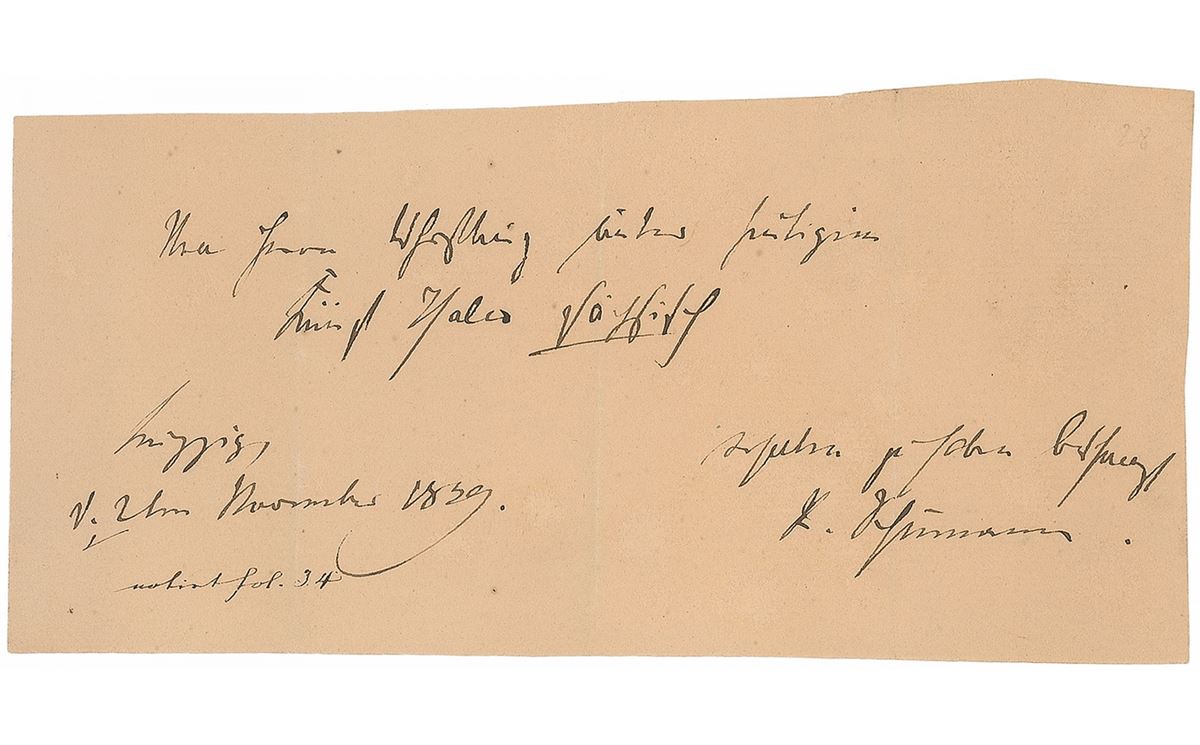 Von Herrn Whistling unter heutigem
Fünf Thaler sächsisch
erhalten zu haben
Leipzig,
d. 2ten November 1839.
R. Schumann.
notirt fol. 34